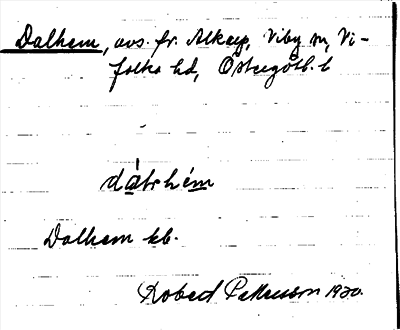 Dalhem, avs. fr. Alkarp, Viby sn, Vi-
folka hd, Östergötl. l
dálrhém
Dalhem kb.
Robert Pettersson 1920.